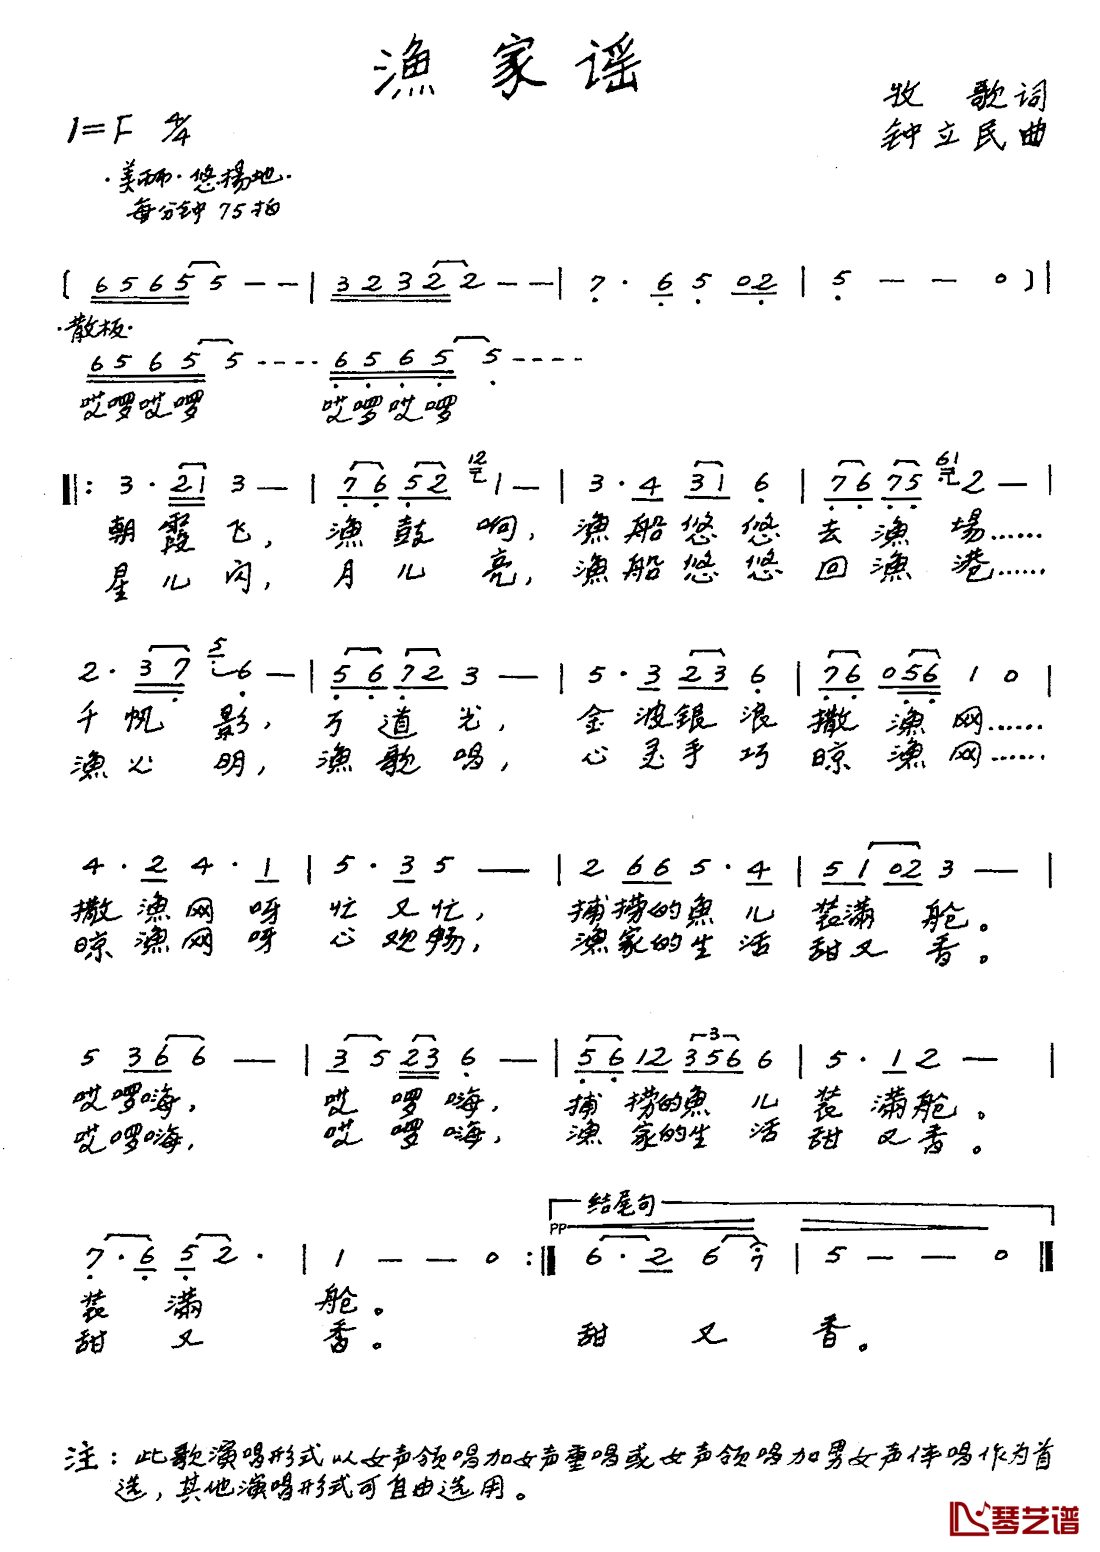 渔家谣
牧歌词
1=F 4/4
钟立民曲
·美丽·悠揚地·
每分钟75拍
〔 6 5 6 5 5 - - | 3 2 3 2 2 - - | 7 · 6 5 0 2 | 5 - - 0 〕|
·散板·
6 5 6 5 5 - - - - 6 5 6 5 5 - - - -
哎啰哎啰 哎啰哎啰
12 61
‖: 3 · 2 1 3 - | 7 6 5 2 1 - | 3 · 4 3 1 6 | 7 6 7 5 2 - |
朝霞飞, 渔鼓响, 渔船悠悠去渔場……
星儿闪, 月儿亮, 渔船悠悠回渔港……
5
2 · 3 7 6 - | 5 6 7 2 3 - | 5 · 3 2 3 6 | 7 6 0 5 6 1 0 |
千帆影, 万道光, 金波銀浪撒渔网……
渔心明, 渔歌唱, 心灵手巧晾渔网……
4 · 2 4 · 1 | 5 · 3 5 - | 2 6 6 5 · 4 | 5 1 0 2 3 - |
撒渔网呀忙又忙, 捕捞的魚儿装满舱。
晾渔网呀心欢畅, 渔家的生活甜又香。
3
5 3 6 6 - | 3 5 2 3 6 - | 5 6 1 2 3 5 6 6 | 5 · 1 2 - |
哎啰嗨, 哎啰嗨, 捕捞的魚儿装满舱。
哎啰嗨, 哎啰嗨, 渔家的生活甜又香。
结尾句
PP
7 · 6 5 2 · | 1 - - 0 :‖ 6 · 2 6 7 | 5 - - 0 ‖
装满舱。
甜又香。 甜又香。
注：此歌演唱形式以女声领唱加女声重唱或女声领唱加男女声伴唱作为首
选，其他演唱形式可自由选用。
琴艺谱